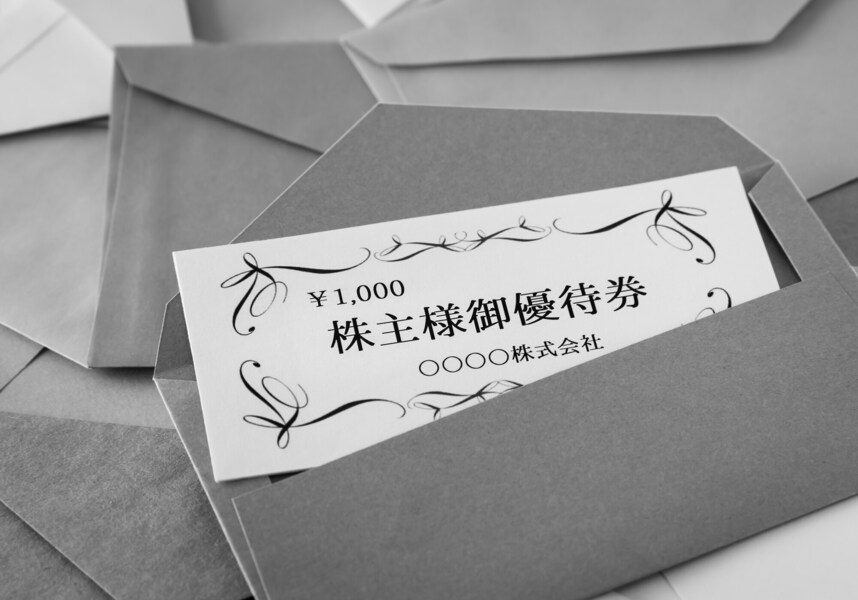 ¥1,000
株主様御優待券
○○○○株式会社